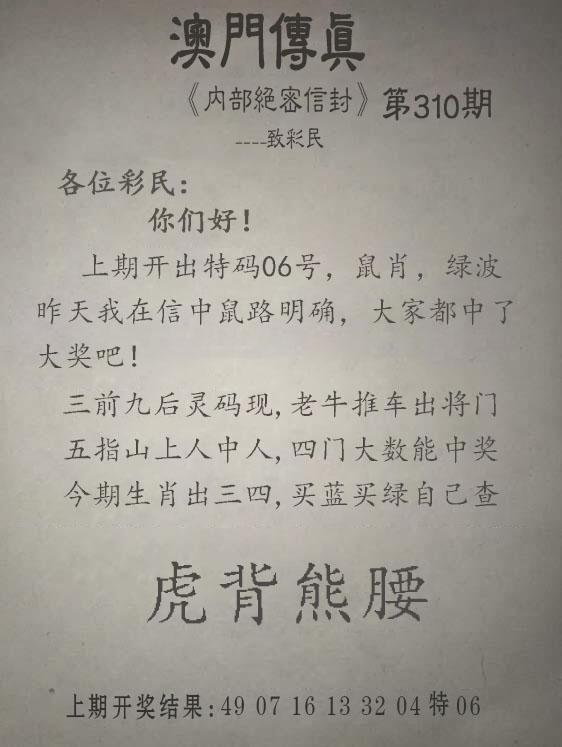 澳門傳真
《内部絕密信封》第310期
----致彩民
各位彩民：
你们好！
上期开出特码06号，鼠肖，绿波
昨天我在信中鼠路明确，大家都中了
大奖吧！
三前九后灵码现,老牛推车出将门
五指山上人中人,四门大数能中奖
今期生肖出三四,买蓝买绿自己查
虎背熊腰
上期开奖结果:49 07 16 13 32 04特06